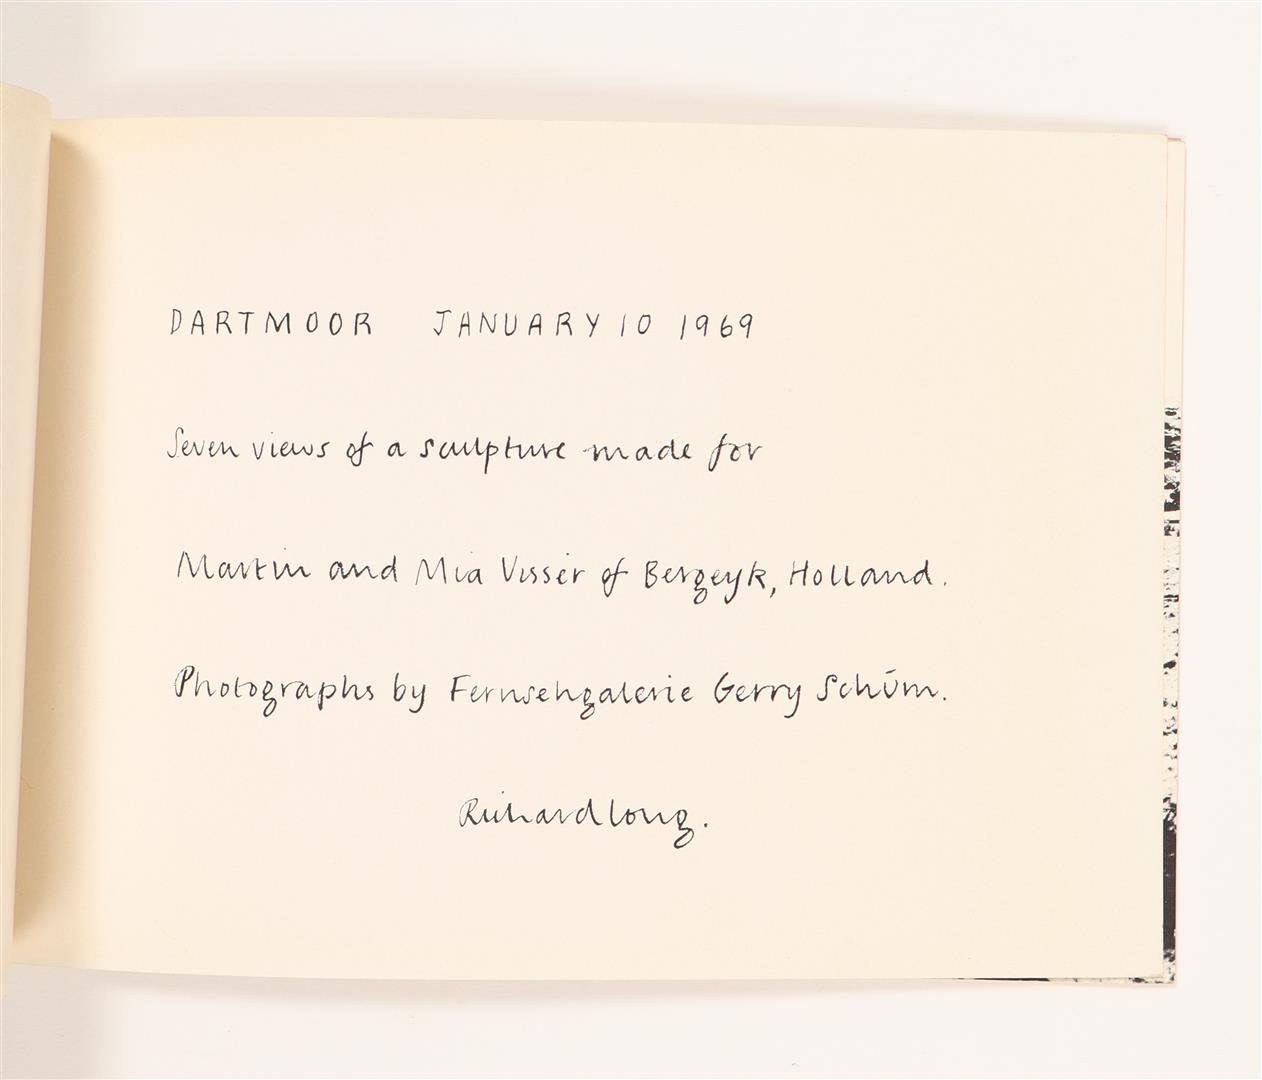 DARTMOOR JANUARY 10 1969
Seven views of a sculpture made for
Martin and Mia Visser of Bergeyk, Holland.
Photographs by Fernsehgalerie Gerry Schūm.
Richard Long.